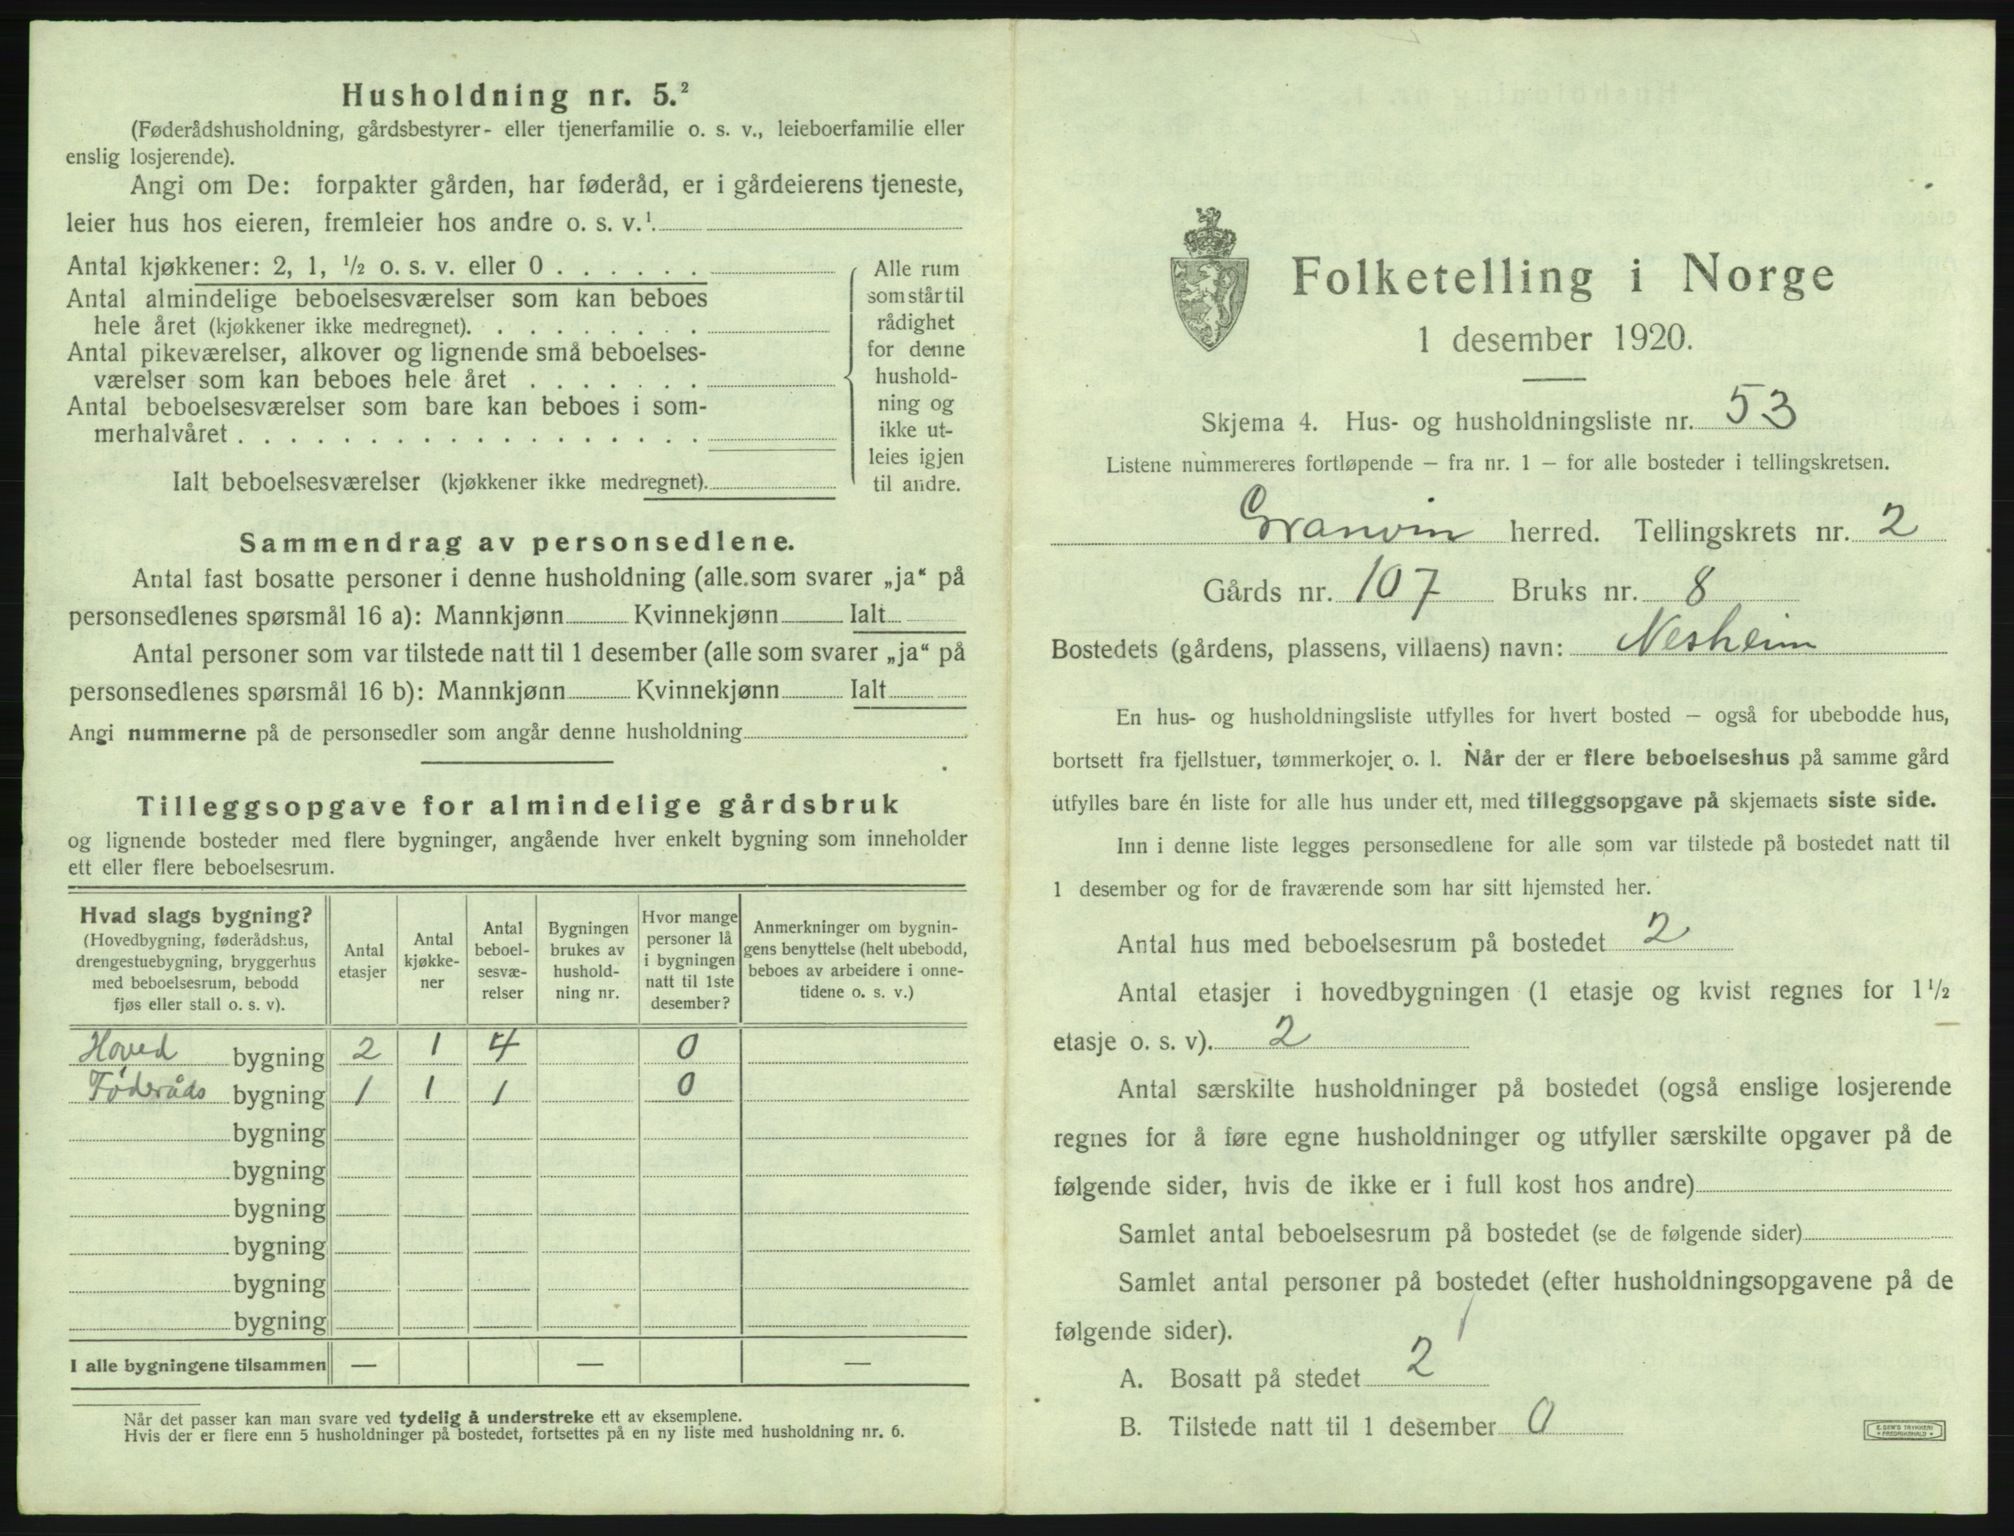 Husholdning nr. 5.²
(Føderådshusholdning, gårdsbestyrer- eller tjenerfamilie o. s. v., leieboerfamilie eller
enslig losjerende).
Angi om De: forpakter gården, har føderåd, er i gårdeierens tjeneste,
leier hus hos eieren, fremleier hos andre o. s. v.¹
Antal kjøkkener: 2, 1, ½ o. s. v. eller 0 . . . . . .
Antal almindelige beboelsesværelser som kan beboes
hele året (kjøkkener ikke medregnet). . . . . . . . .
Antal pikeværelser, alkover og lignende små beboelses-
værelser som kan beboes hele året . . . . . . .
Antal beboelsesværelser som bare kan beboes i som-
merhalvåret . . . . . . . . . . . . . . . . . .
Ialt beboelsesværelser (kjøkkener ikke medregnet).
Alle rum
som står til
rådighet
for denne
hushold-
ning og
ikke ut-
leies igjen
til andre.
Sammendrag av personsedlene.
Antal fast bosatte personer i denne husholdning (alle som svarer „ja“ på
personsedlenes spørsmål 16 a): Mannkjønn Kvinnekjønn Ialt
Antal personer som var tilstede natt til 1 desember (alle som svarer „ja“ på
personsedlenes spørsmål 16 b): Mannkjønn Kvinnekjønn Ialt
Angi nummerne på de personsedler som angår denne husholdning
Tilleggsopgave for almindelige gårdsbruk
og lignende bosteder med flere bygninger, angående hver enkelt bygning som inneholder
ett eller flere beboelsesrum.
Hvad slags bygning?
(Hovedbygning, føderådshus,
drengestuebygning, bryggerhus
med beboelsesrum, bebodd
fjøs eller stall o. s. v).
Antal
etasjer
Antal
kjøkke-
ner
Antal
beboel-
sesvæ-
relser
Bygningen
brukes av
hushold-
ning nr.
Hvor mange
personer lå
i bygningen
natt til 1ste
desember?
Anmerkninger om bygnin-
gens benyttelse (helt ubebodd,
beboes av arbeidere i onne-
tidene o. s. v.)
Hoved bygning 2 1 4 0
Føderåds bygning 1 1 1 0
bygning
bygning
bygning
bygning
bygning
bygning
I alle bygningene tilsammen — — —
Når det passer kan man svare ved tydelig å understreke ett av eksemplene.
Hvis der er flere enn 5 husholdninger på bostedet, fortsettes på en ny liste med husholdning nr. 6.
Folketelling i Norge
1 desember 1920.
Skjema 4. Hus- og husholdningsliste nr. 53
Listene nummereres fortløpende – fra nr. 1 – for alle bosteder i tellingskretsen.
Granvin herred. Tellingskrets nr. 2
Gårds nr. 107 Bruks nr. 8
Bostedets (gårdens, plassens, villaens) navn: Nesheim
En hus- og husholdningsliste utfylles for hvert bosted – også for ubebodde hus,
bortsett fra fjellstuer, tømmerkojer o. l. Når der er flere beboelseshus på samme gård
utfylles bare én liste for alle hus under ett, med tilleggsopgave på skjemaets siste side.
Inn i denne liste legges personsedlene for alle som var tilstede på bostedet natt til
1 desember og for de fraværende som har sitt hjemsted her.
Antal hus med beboelsesrum på bostedet 2
Antal etasjer i hovedbygningen (1 etasje og kvist regnes for 1½
etasje o. s. v). 2
Antal særskilte husholdninger på bostedet (også enslige losjerende
regnes for å føre egne husholdninger og utfyller særskilte opgaver på de
følgende sider, hvis de ikke er i full kost hos andre)
Samlet antal beboelsesrum på bostedet (se de følgende sider)
Samlet antal personer på bostedet (efter husholdningsopgavene på de
følgende sider).
A. Bosatt på stedet 2
B. Tilstede natt til 1 desember 0
E. SEM'S TRYKKERI
FREDRIKSHALD